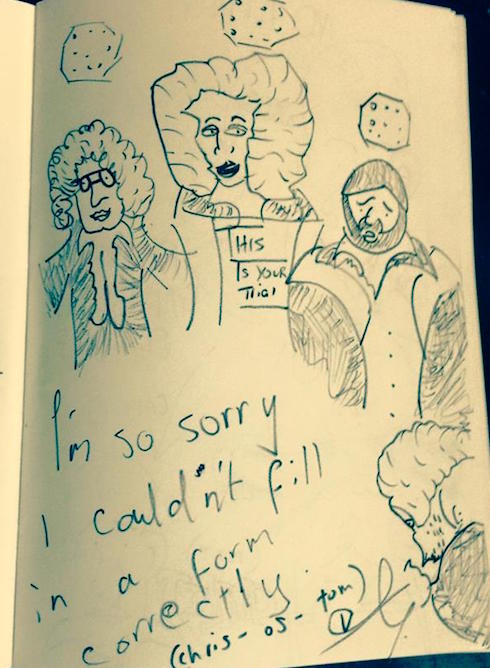 HIS
IS YOUR
I'm so sorry
I could'n't fill
in a form
correctly.
(chris-os-tom)